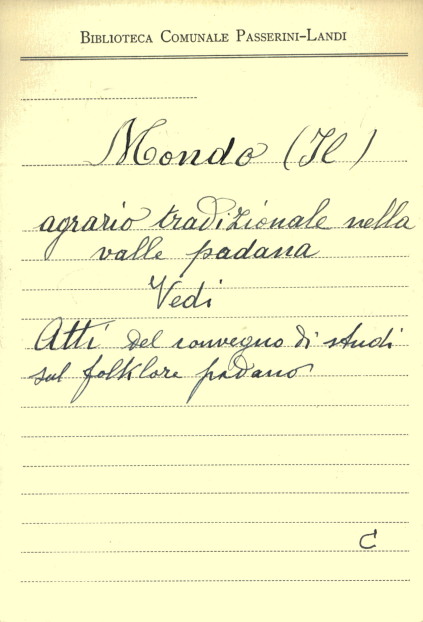 Biblioteca Comunale Passerini-Landi
Mondo (Il)
agrario tradizionale nella
valle padana
Vedi
Atti del convegno di studi
sul folklore padano
C